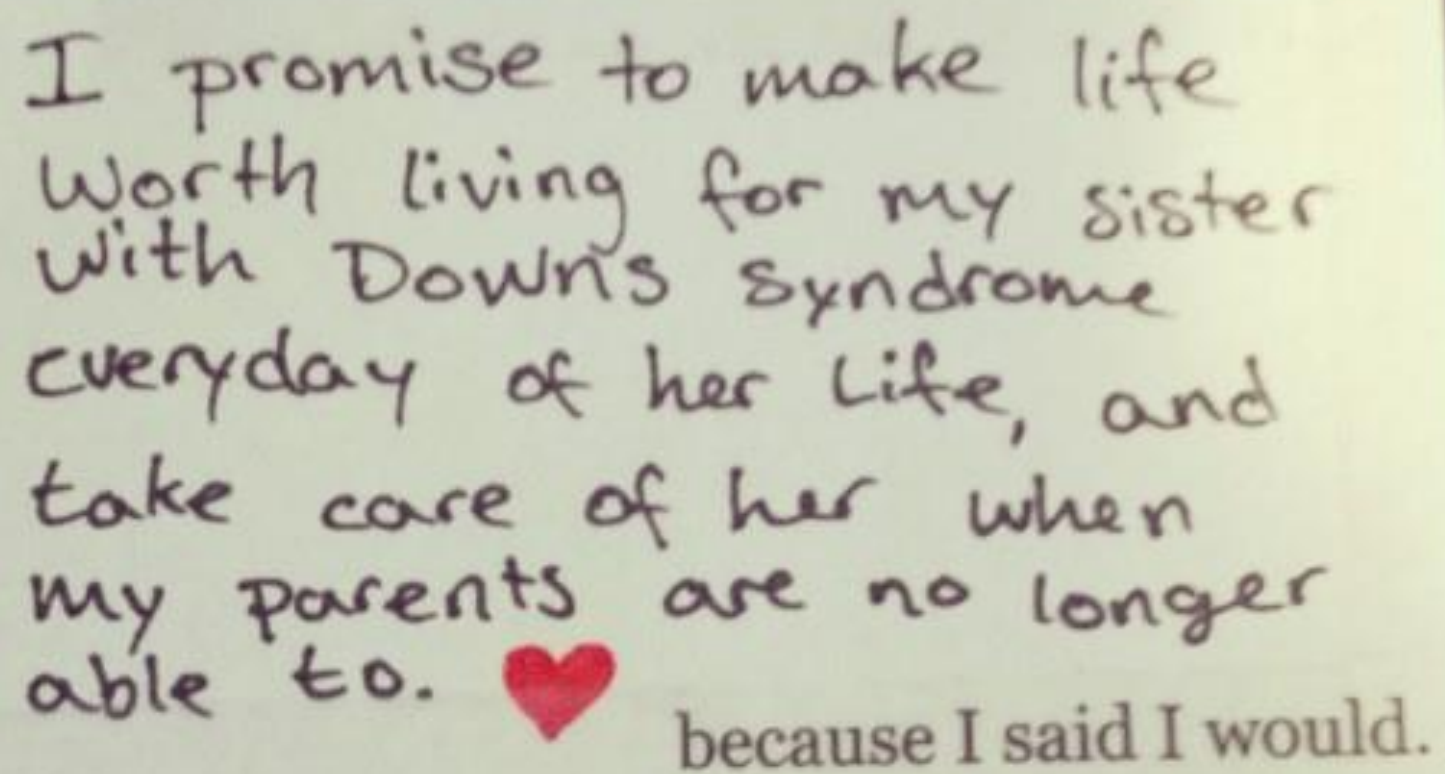 I promise to make life
worth living for my sister
with Down's syndrome
everyday of her Life, and
take care of her when
my parents are no longer
able to.
because I said I would.